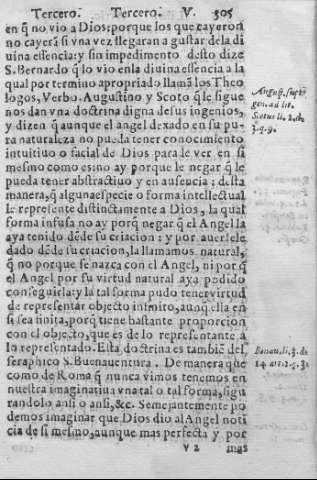 Tercero. Tercero. V. 305
en q̃ no vio a Dios: porque los que cayeron
no cayerã si vna vez llegaran a gustar dela di
uina essencia: y sin impedimento desto dize
S. Bernardo q̃ lo vio enla diuina essencia a la
qual por termino apropriado llamã los Theo
logos, Verbo. Augustino y Scoto q̃ le sigue
nos dan vna doctrina digna de sus ingenios,
y dizen q̃ aunque el angel dexado en su pu-
ra naturaleza no pueda tener conocimiento
intuitiuo o facial de Dios para le ver en si
mismo como es: no ay porque le negar q̃ le
pueda tener abstractiuo y en ausencia; desta
manera, q̃ alguna especie o forma intellectual
le represente distinctamente a Dios, la qual
forma infusa no ay porq̃ negar q̃ el Angel la
aya tenido dẽde su criacion: y por auersele
dado dẽde su criacion, la llamamos natural,
q̃ no porque se nazca con el Angel, ni porq̃
el Angel por su virtud natural aya podido
conseguirla: y la tal forma pudo tener virtud
de representar objecto infinito, aunq̃ ella en
si sea finita, porq̃ tiene bastante proporcion
con el objecto, que es de lo representante a
lo representado. Esta doctrina es tambiẽ del
seraphico S. Buenauentura. De manera que
como de Roma q̃ nunca vimos tenemos en
nuestra imaginatiua vna tal o tal forma, figu
randolo ansi o ansi, &c. Semejantemente po
demos imaginar que Dios dio al Angel noti
cia de si mismo, aunque mas perfecta y por
V 2 mas
August. sup̃
gen. ad lit.
Scotus li. 2. di.
3. q. 9.
Bonau. li. 3. di.
14. ar. 2. q. 3.